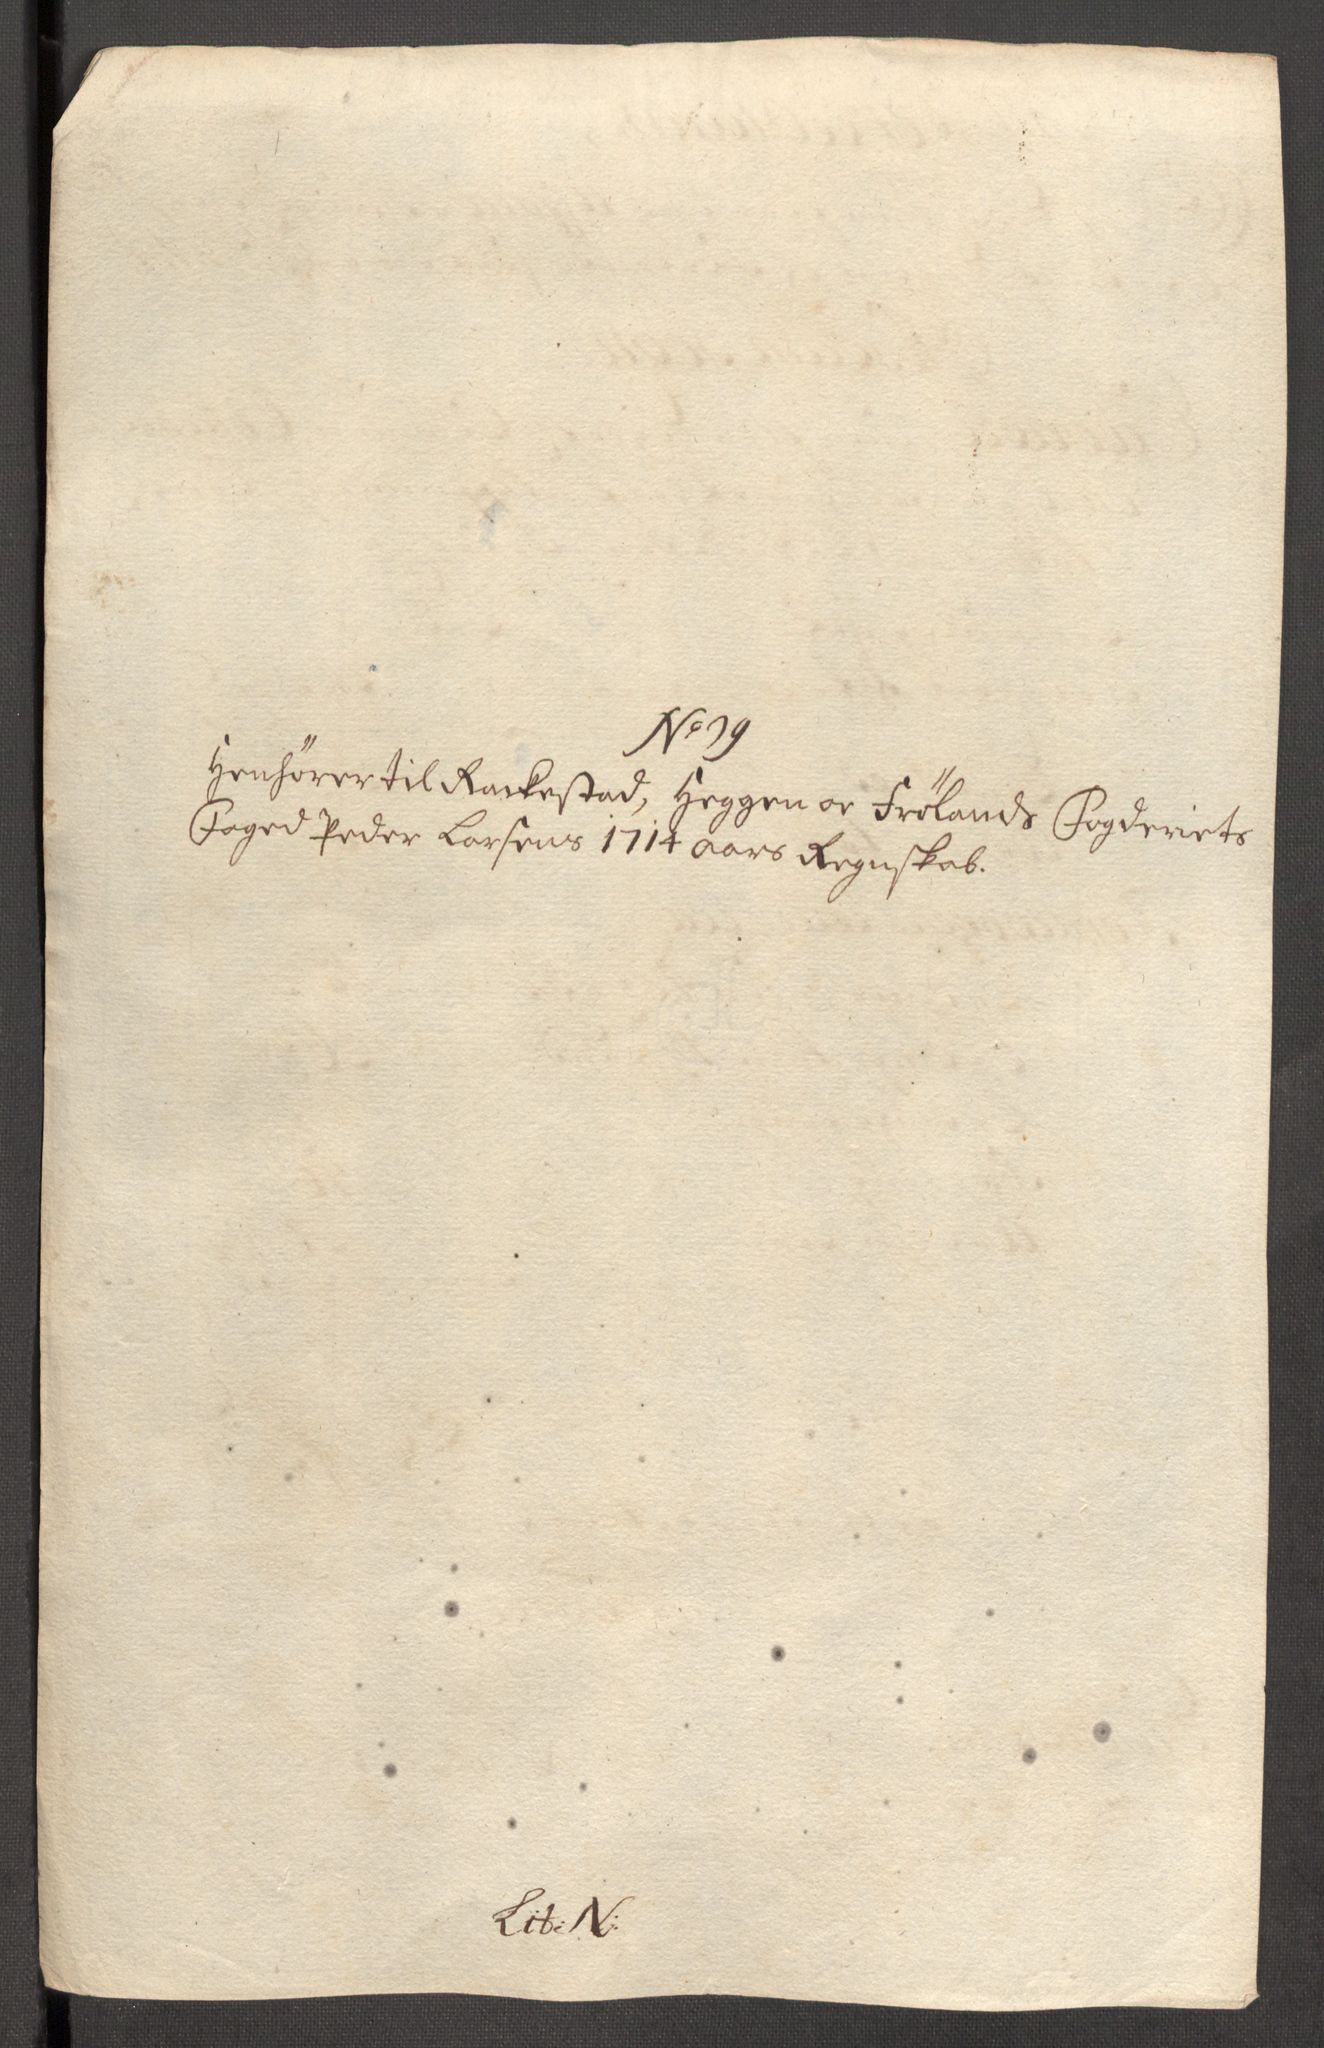 No 79
Henhörer til Rackestad, Heggen oc Frölands Fogderiets
Foged Peder Larsens 1714 aars Regnskab.
Lit: N: